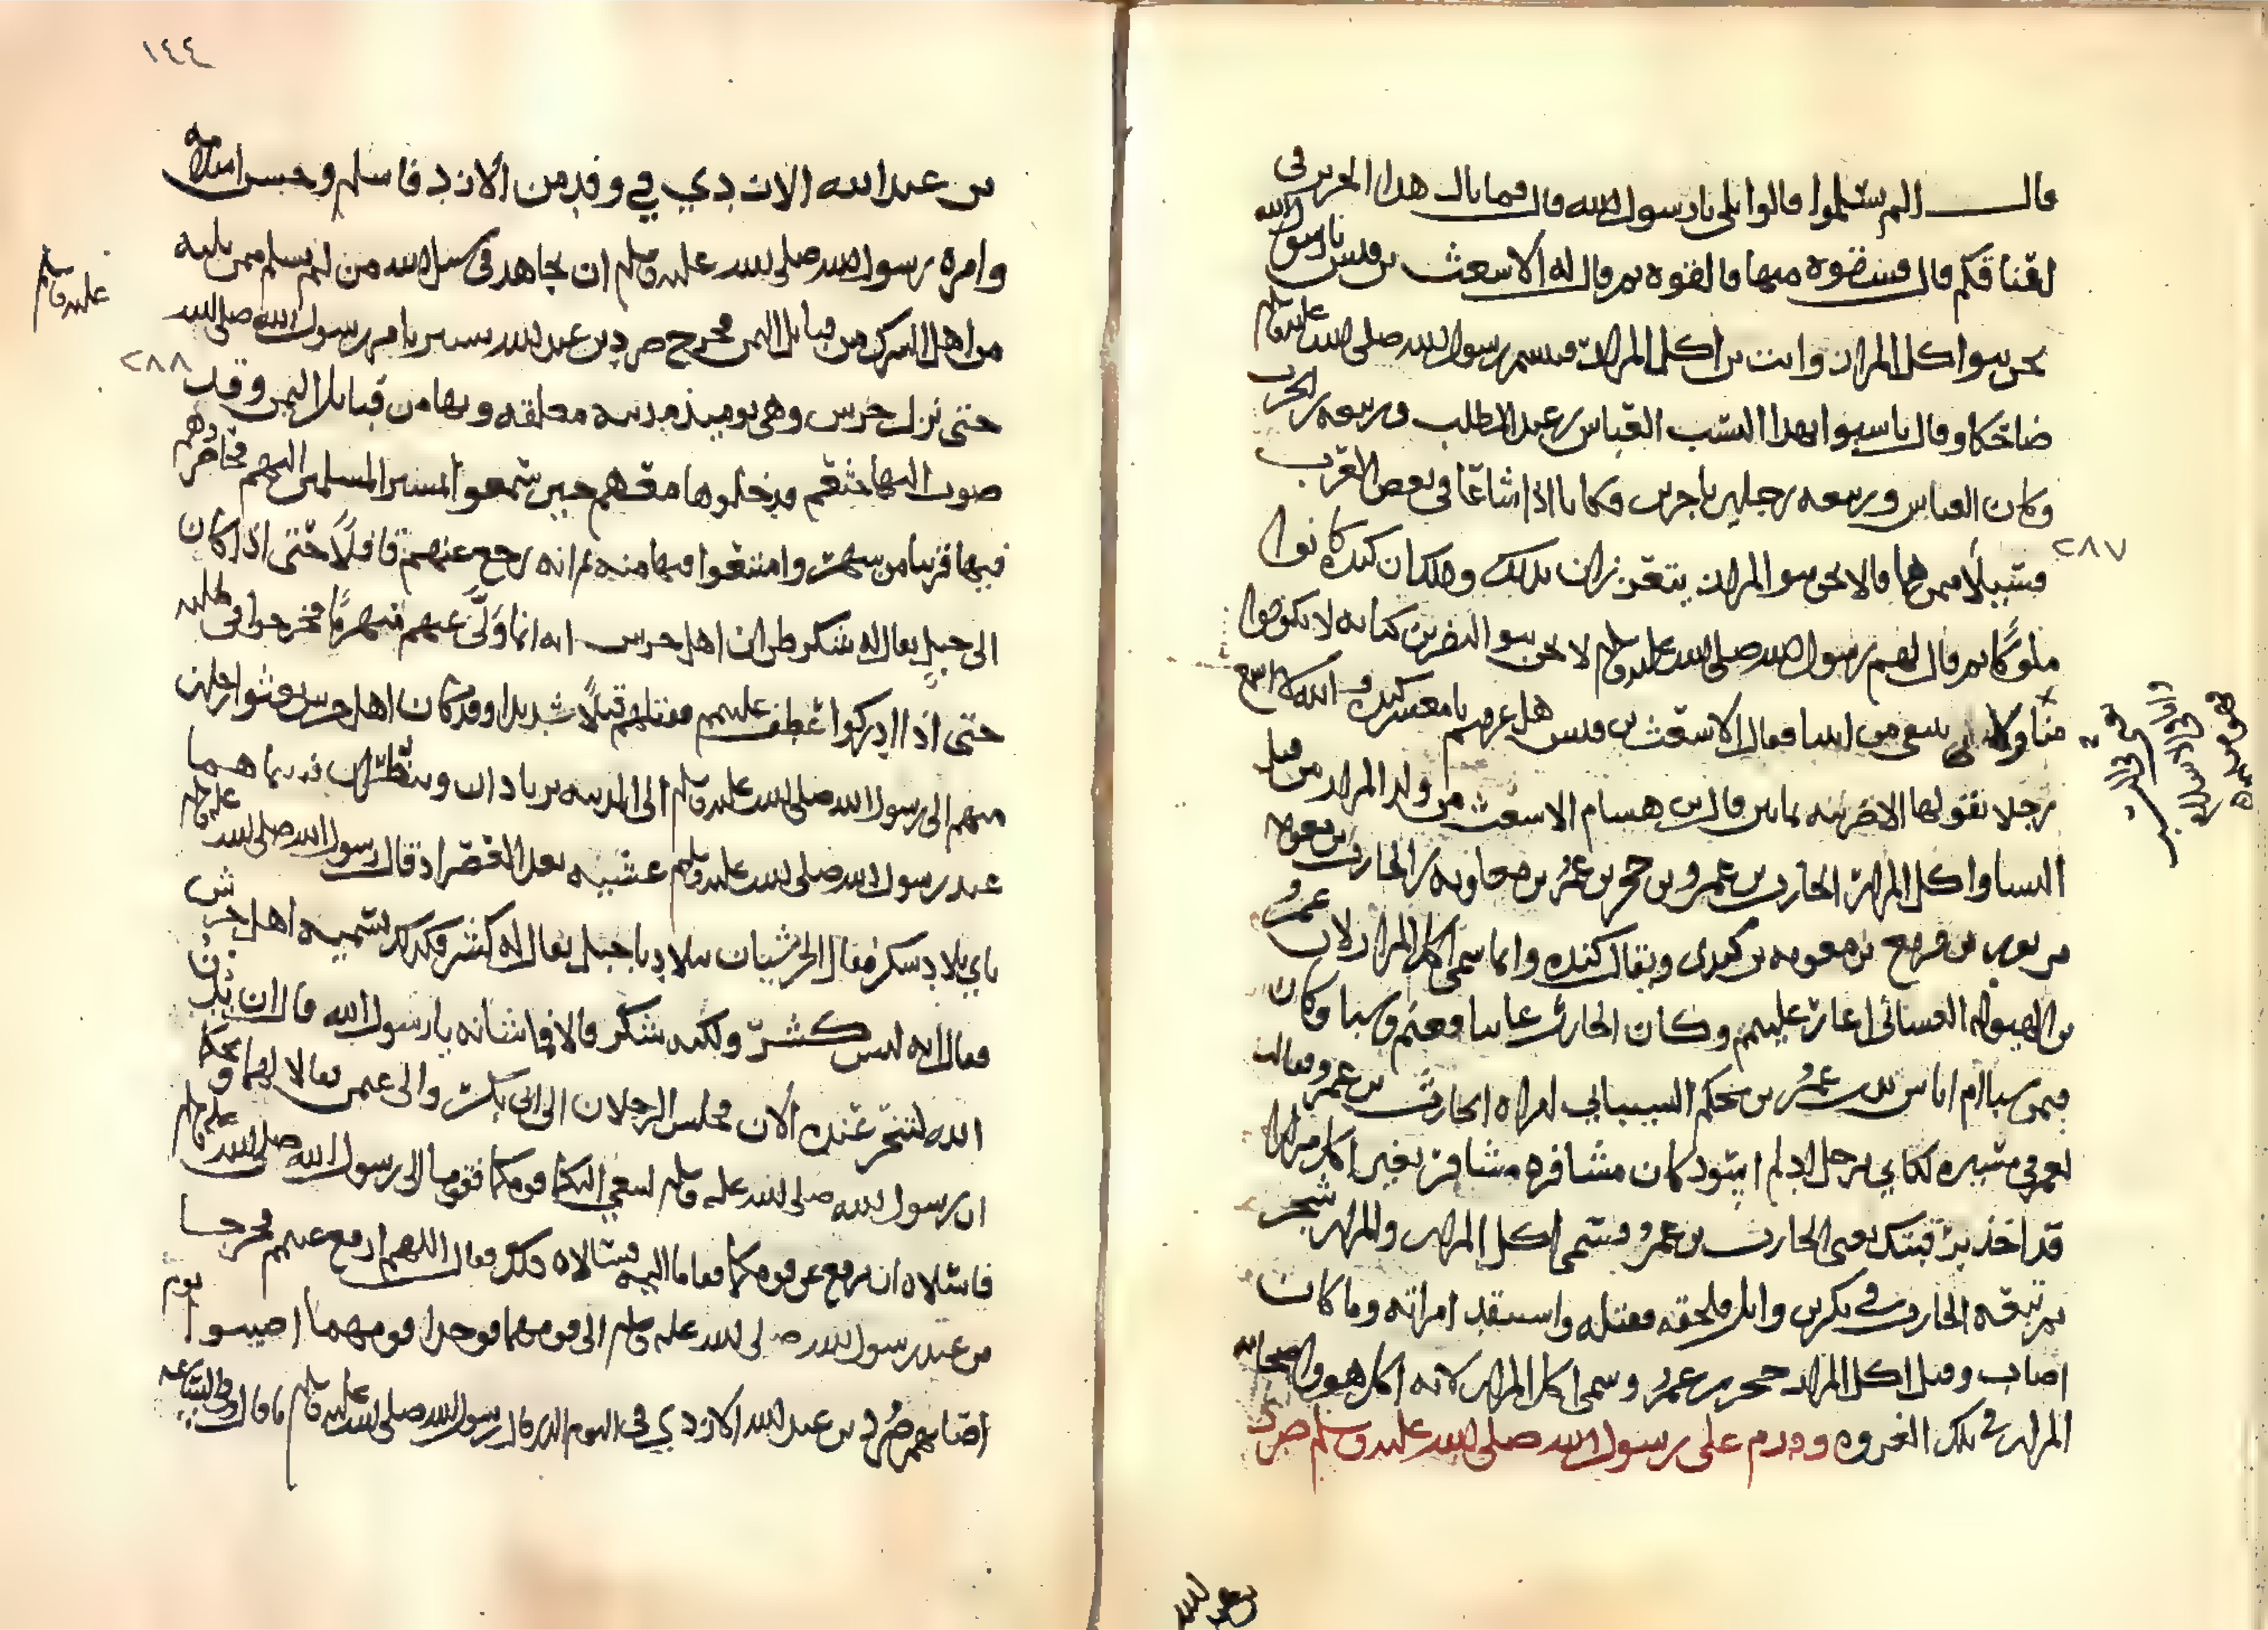 قال الم تسلموا قالوا بلى يا رسول الله قال فما بال هذا الحرير في
اعناقكم قال فشقوه منها فالقوه ثم قال له الاشعث بن قيس يا رسول الله
نحن بنوا اكل المرار وانت بن اكل المرار فتبسم رسول الله صلى الله عليه وسلم
ضاحكا وقال ناسبوا بهذا النسب العباس بن عبد المطلب وربيعه بن الحرث
وكان العباس وربيعه رجلين تاجرين وكانا اذا شاعا في بعض العرب
٢٨٧
فسيلا ممن هما قالا نحن بنو المرار يتعززان بذلك وذلك ان كنده كانوا
ملوكا ثم قال لهم رسول الله صلى الله عليه وسلم لا نحن بنو النضر بن كنانه لا نقفوا
منا ولا ننتفي من ابينا فقال الاشعث بن قيس هل فرغتم يا معشر كنده والله لا اسمع
رجلا يقولها الا ضربته ثمانين قال بن هشام الاشعث من ولد اكل المرار من قبل
النسا واكل المرار الحارث بن عمرو بن حجر بن عمرو بن معاويه بن الحارث بن معويه
بن ثور بن مرتع بن معويه بن كندي ويقال كنده وانما سمي اكل المرار لان عمرو
بن الهبوله الغساني اغار عليهم وكان الحارث غايبا فغنم وسبا وكان
فيمن سبا ام اناس بنت عوف بن محلم الشيباني امراه الحارث بن عمرو فقالت
لعمرو في مسيره لكاني برجل ادلم اسود كان مشافره مشافر بعير اكل مرار
قد اخذ برقبتك يعني الحارث بن عمرو فسمي اكل المرار والمرار شجر
ثم تبعه الحارث في بكر بن وايل فلحقه فقتله واستنقذ امراته وما كان
اصاب وقيل اكل المرار حجر بن عمرو وسمي اكل المرار لانه اكل هو واصحابه
المرار في تلك الغزوه وقدم على رسول الله صلى الله عليه وسلم صرد
بن عبد الله
١٤٤
بن عبد الله الازدي في وفد من الازد فاسلم وحسن اسلامه
وامره رسول الله صلى الله عليه وسلم ان يجاهد في سبيل الله من اسلم ممن يليه
من اهل الشرك من قبايل اليمن فخرج صرد بن عبد الله يسير بامر رسول الله صلى الله
عليه وسلم
٢٨٨
حتى نزل جرش وهي يوميذ مدينه مغلقه وبها من قبايل اليمن وقد
ضوت اليها خثعم فدخلوها معهم حين سمعوا بمسير المسلمين اليهم فحاصرهم
فيها قريبا من شهر وامتنعوا فيها منه ثم انه رجع عنهم قافلا حتى اذا كان
الى جبل يقال له شكر ظن اهل جرش انه انما ولى عنهم منهزما فخرجوا في طلبه
حتى اذا ادركوا عطف عليهم فقتلهم قتلا شديدا وقد كان اهل جرش بعثوا رجلين
منهم الى رسول الله صلى الله عليه وسلم الى المدينه يرتادان وينظران فبينما هما
عند رسول الله صلى الله عليه وسلم عشيه بعد العصر اذ قال رسول الله صلى الله عليه وسلم
باي بلاد شكر فقال الجرشيان ببلادنا جبل يقال له كشر وكذلك تسميه اهل جرش
فقال انه ليس كشر ولكنه شكر قالا فما شانه يا رسول الله قال ان بدن
الله لتنحر عنده الان فجلس الرجلان الى ابي بكر والى عثمن فقالا لهما ويحكما
ان رسول الله صلى الله عليه وسلم لينعي اليكما قومكما فقوما الى رسول الله صلى الله عليه وسلم
فاسلاه ان يرفع عن قومكما فقاما اليه فسالاه ذلك فقال اللهم ارفع عنهم فخرجا
من عند رسول الله صلى الله عليه وسلم الى قومهما فوجدا قومهما اصيبوا يوم
اصابهم صرد بن عبد الله الازدي في اليوم الذي قال رسول الله صلى الله عليه وسلم ما قال وفي الساعه